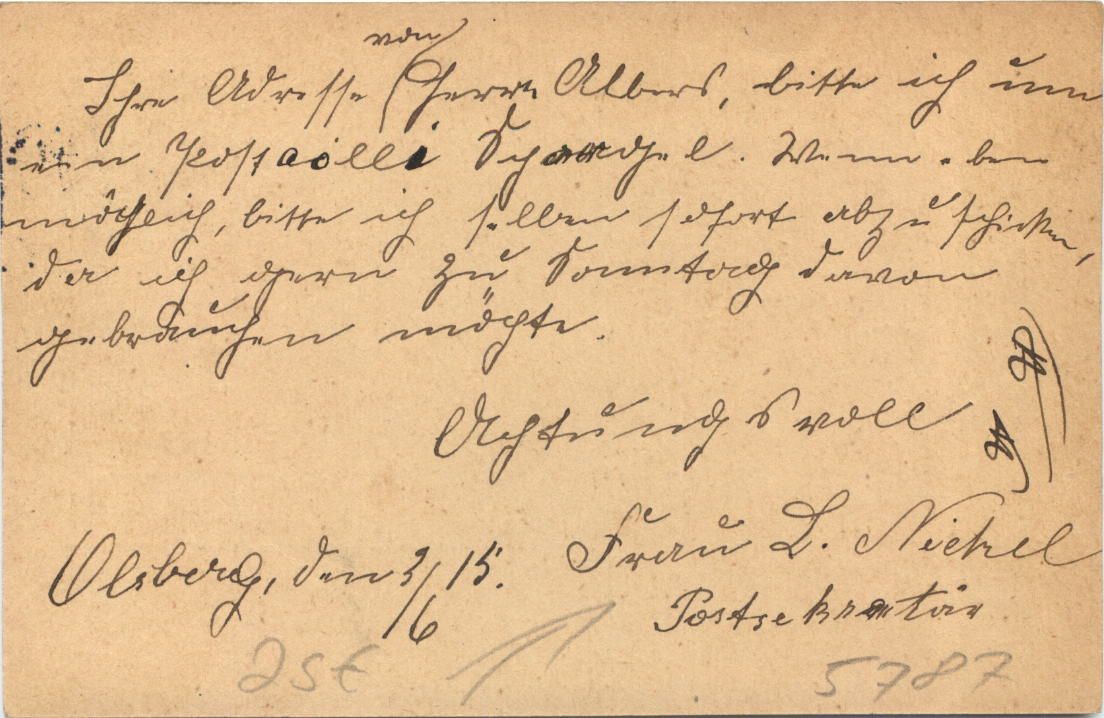 Ihre Adresse von Herrn Albers, bitte ich um
ein Postcolli Spargel. Wenn eben
möglich, bitte ich selben sofort abzuschicken,
da ich gern zu Sonntag davon
gebrauchen möchte.
Achtungsvoll
Olsberg, den 3/6 15. Frau L. Nickel
Postsekretär
25€ 5787